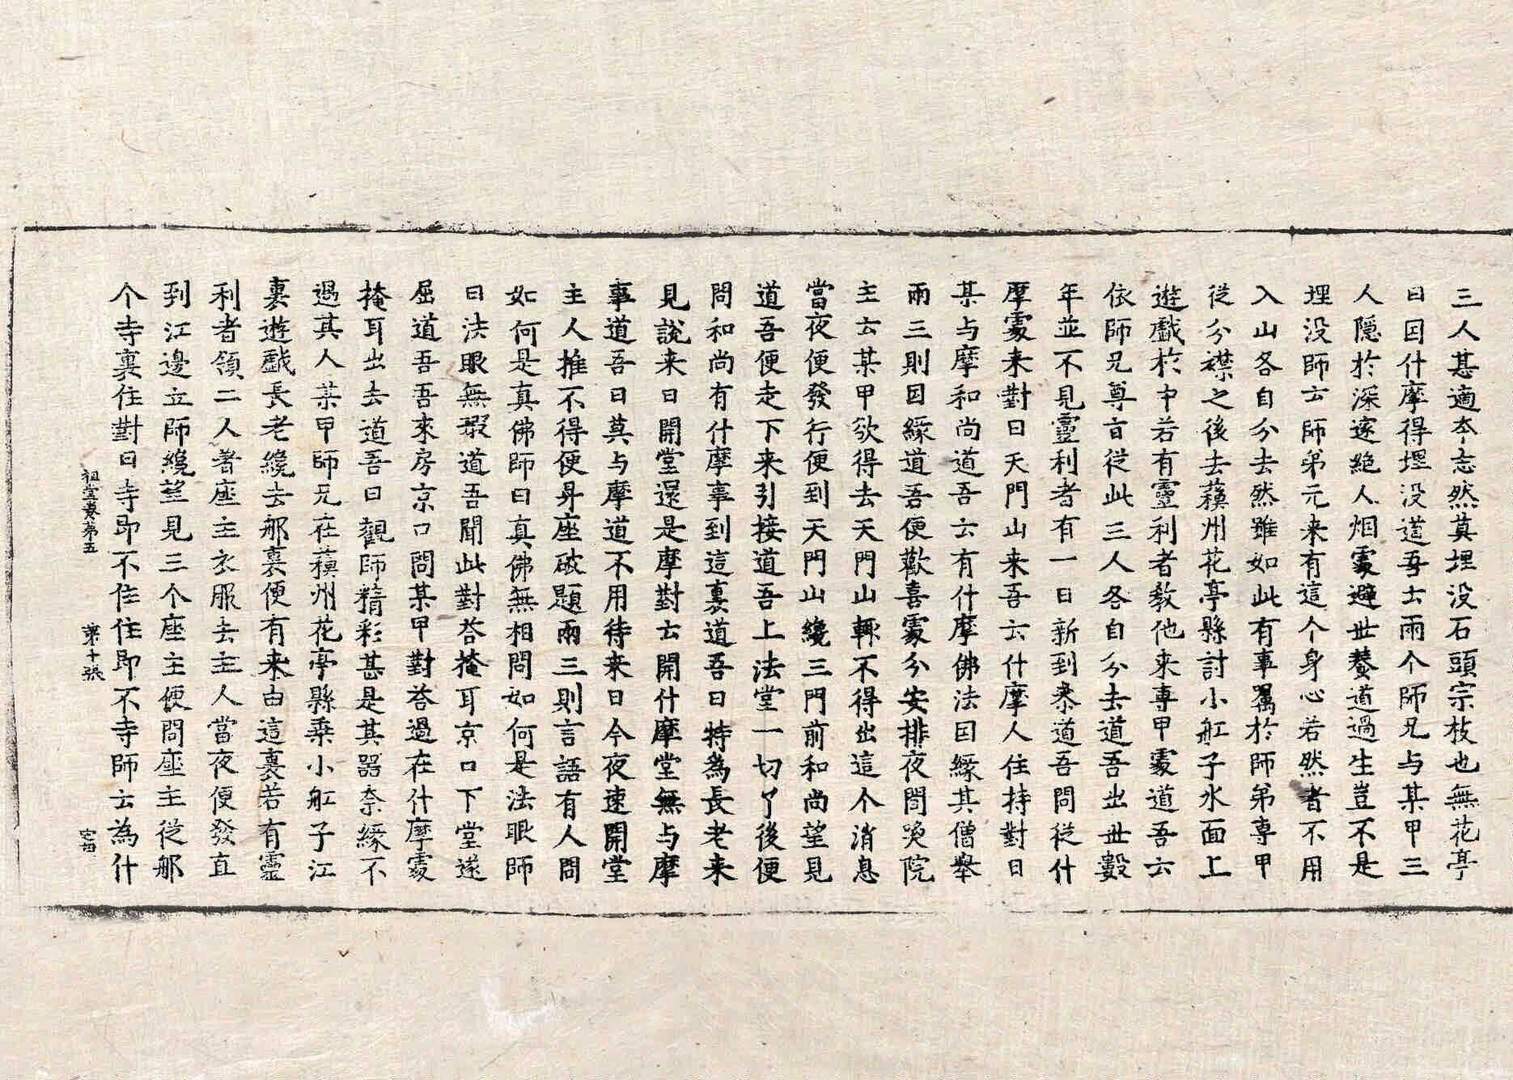 三人甚適夲志然莫埋没石頭宗枝也無花亭
曰因什摩得埋没道吾士兩个師兄与某甲三
人隱於深邃絶人烟䖏避世養道過生豈不是
埋没師云師弟元来有這个身心若然者不用
入山各自分去然雖如此有事囑於師弟專甲
從分襟之後去蘓州花亭縣討小舡子水面上
遊戱於中若有靈利者教他来專甲䖏道吾云
依師兄尊旨從此三人各自分去道吾出世數
年並不見靈利者有一日新到叅道吾問從什
摩䖏来對曰天門山来吾云什摩人住持對曰
某与摩和尚道吾云有什摩佛法因緣其僧舉
兩三則因緣道吾便歡喜䖏分安排夜間喚院
主云某甲欲得去天門山輙不得出這个消息
當夜便發行便到天門山纔三門前和尚望見
道吾便走下来引接道吾上法堂一切了後便
問和尚有什摩事到這裏道吾曰特為長老来
見說来日開堂還是摩對云開什摩堂無与摩
事道吾曰莫与摩道不用待来日今夜速開堂
主人推不得便昇座破題兩三則言語有人問
如何是真佛師曰真佛無相問如何是法眼師
曰法眼無瑕道吾聞此對荅掩耳京口下堂遂
屈道吾吾來房京口問某甲對荅過在什摩䖏
掩耳出去道吾曰觀師精彩甚是其器柰緣不
過其人某甲師兄在蘓州花亭縣乗小舡子江
裏遊戱長老纔去那裏便有来由這裏若有靈
利者領二人著座主衣服去主人當夜便發直
到江邊立師纔望見三个座主便問座主從那
个寺裏住對曰寺即不住住即不寺師云為什
祖堂集第五　第十張